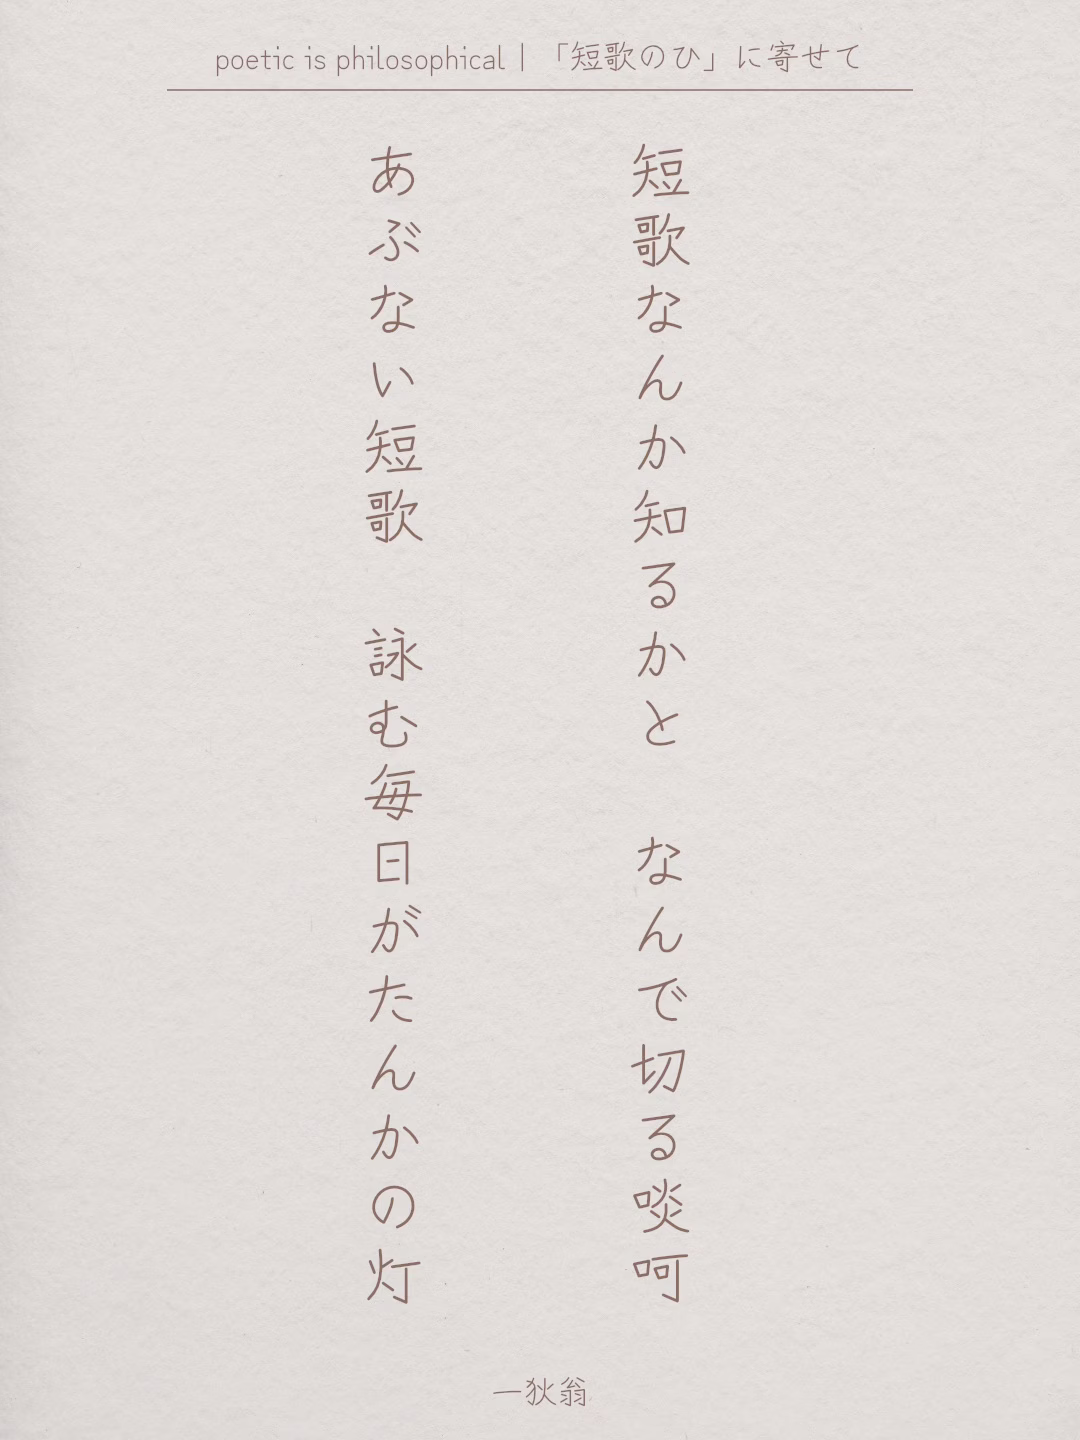 poetic is philosophical｜「短歌のひ」に寄せて
短歌なんか知るかと　なんで切る啖呵
あぶない短歌　詠む毎日がたんかの灯
一狄翁